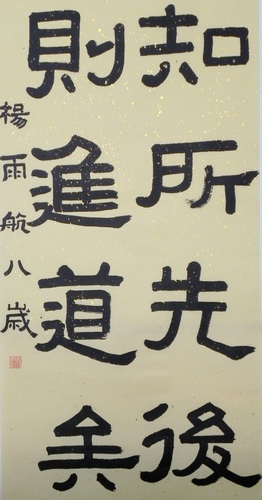 知所先後
則進道矣
楊雨航八歲